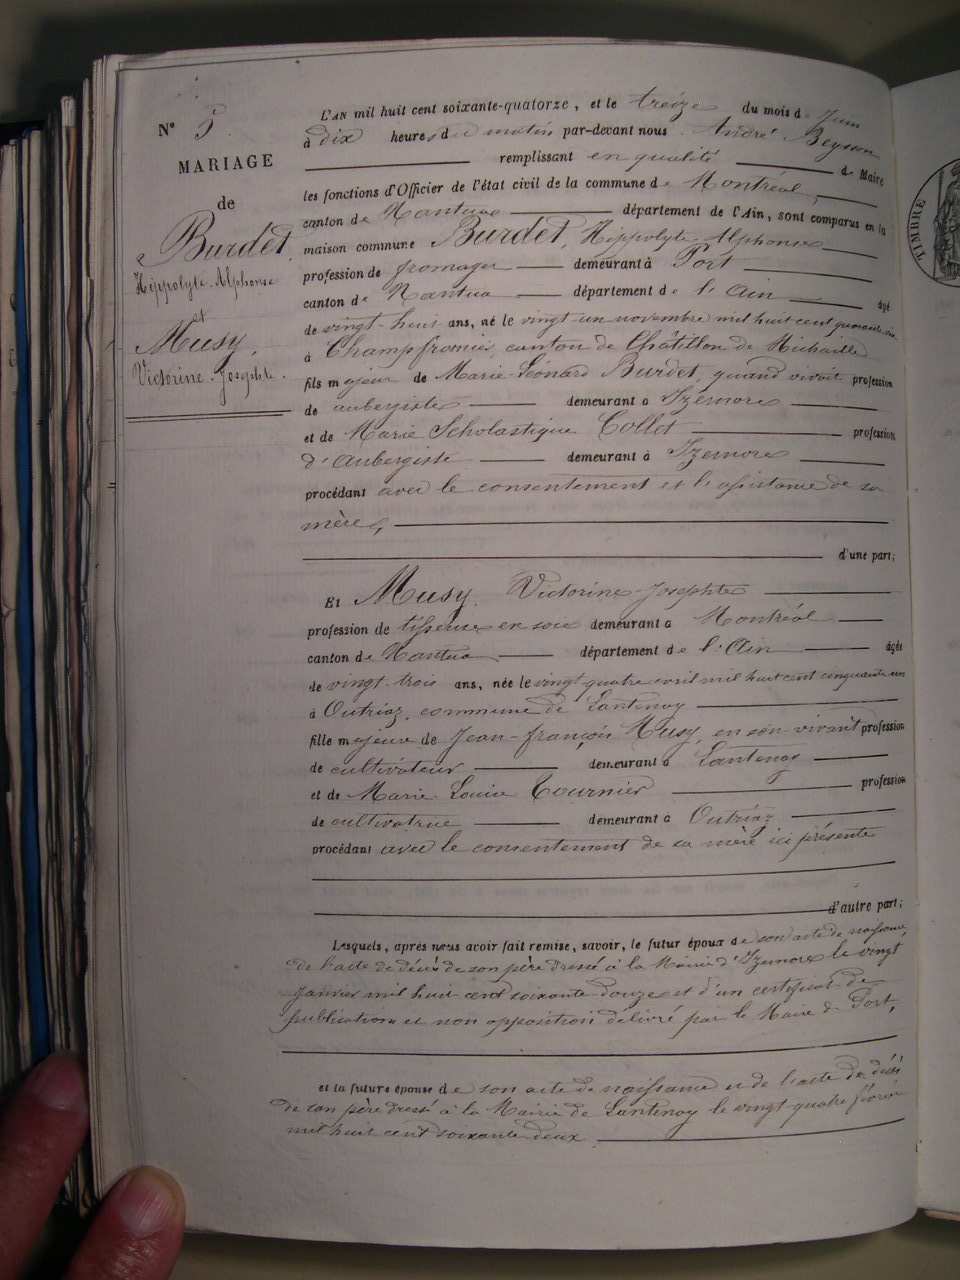 N° 5.
MARIAGE
de
Burdet,
Hippolyte-Alphonse
et
Musy,
Victorine-Josephte.
L'AN mil huit cent soixante-quatorze, et le treize du mois de Juin
à dix heures du matin par-devant nous André Beysson
remplissant en qualité de Maire
les fonctions d'Officier de l'état civil de la commune de Montréal,
canton de Nantua département de l'Ain, sont comparus en la
maison commune Burdet, Hippolyte-Alphonse
profession de fromager demeurant à Port
canton de Nantua département de l'Ain âgé
de vingt-huit ans, né le vingt-un novembre mil huit cent quarante-
à Champfromier, canton de Châtillon de Michaille
fils majeur de Marie-Léonard Burdet, quand vivait profession
de aubergiste demeurant à Izernore
et de Marie Scholastique Collet profession
d'aubergiste demeurant à Izernore
procédant avec le consentement et l'assistance de sa
mère,
d'une part;
Et Musy, Victorine-Josephte
profession de tisseuse en soie demeurant à Montréal
canton de Nantua département de l'Ain âgée
de vingt-trois ans, née le vingt-quatre avril mil huit cent cinquante-un
à Outriaz, commune de Lantenay
fille majeure de Jean-françois Musy, en son vivant profession
de cultivateur demeurant à Lantenay
et de Marie-Louise Tournier profession
de cultivatrice demeurant à Outriaz
procédant avec le consentement de sa mère ici présente
d'autre part;
Lesquels, après nous avoir fait remise, savoir, le futur époux de son acte de naissance,
de l'acte de décès de son père dressé à la Mairie d'Izernore le vingt
janvier mil huit cent soixante-douze et d'un certificat de
publications et non opposition délivré par le Maire de Port,
et la future épouse de son acte de naissance et de l'acte de décès
de son père dressé à la Mairie de Lantenay le vingt-quatre février
mil huit cent soixante-deux
TIMBRE